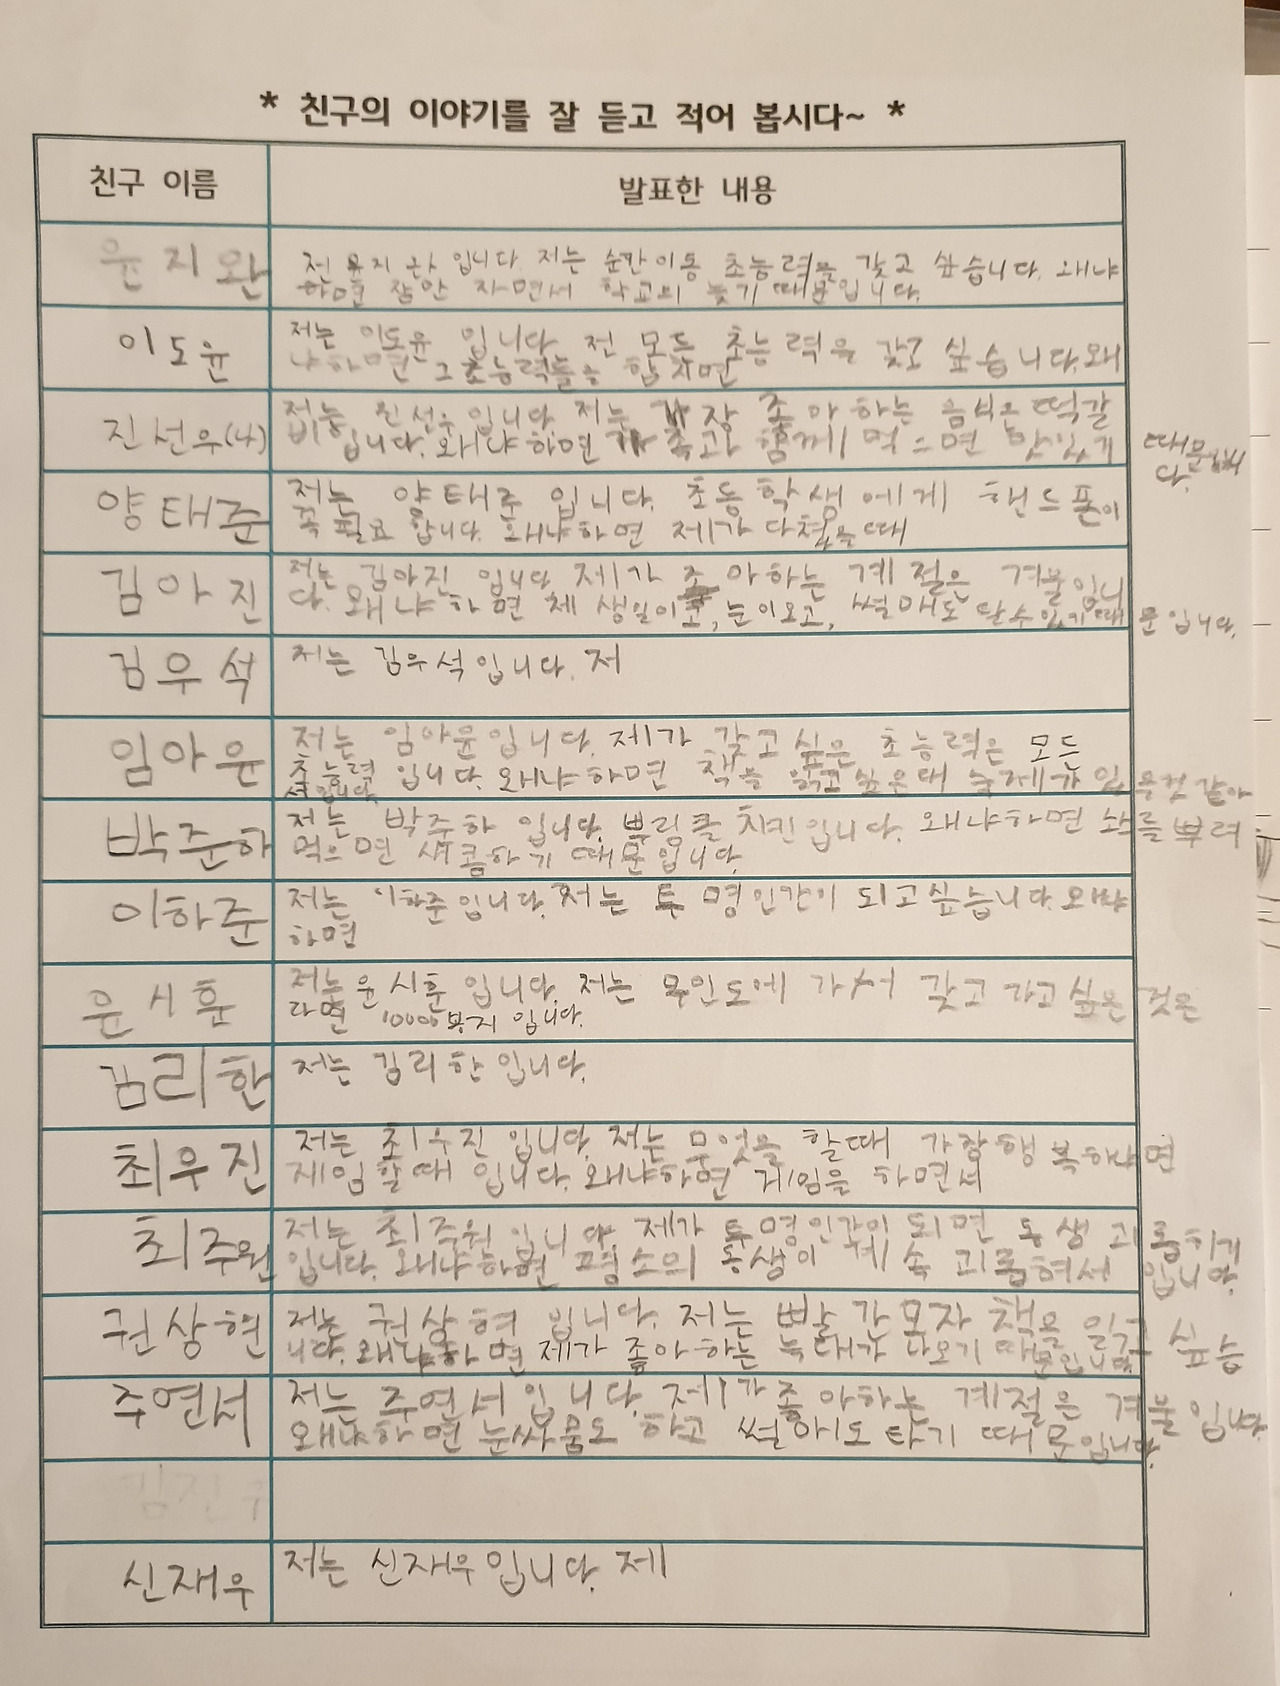 * 친구의 이야기를 잘 듣고 적어 봅시다~ *
친구 이름 발표한 내용
윤지완
전 윤지완 입니다. 저는 순간이동 초능력을 갖고 싶습니다. 왜냐
하면 잠깐 자면서 학교의 늦기 때문입니다.
이도윤
저는 이도윤 입니다. 전 모든 초능력을 갖고 싶습니다. 왜
냐하면 그 초능력들을 합치면
진선우(4)
저는 진선우입니다. 저는 가장 좋아하는 음식은 떡갈
비 입니다. 왜냐하면 가족과 함께 먹으면 맛있기 때문입니
다.
양태준
저는 양태준 입니다. 초등학생에게 핸드폰이
꼭 필요 합니다. 왜냐하면 제가 다쳤을때
김아진
저는 김아진 입니다. 제가 좋아하는 계절은 겨울입니
다. 왜냐하면 제 생일이고, 눈이오고, 썰매도 탈수있기때문입니다.
김우석
저는 김우석입니다. 저
임아윤
저는 임아윤입니다. 제가 갖고싶은 초능력은 모든
초능력 입니다. 왜냐하면 책을 읽고싶은데 숙제가 있을것 같아
서입니다.
박준하
저는 박준하 입니다. 뿌링클 치킨입니다. 왜냐하면 를 뿌려
먹으면 새콤하기 때문입니다.
이하준
저는 이하준입니다. 저는 투명인간이 되고싶습니다. 왜냐
하면
윤시훈
저는 윤시훈 입니다. 저는 무인도에 가서 갖고 가고싶은 것은
라면 10000봉지 입니다.
김리한
저는 김리한입니다.
최우진
저는 최우진 입니다. 저는 무엇을 할때 가장행복하냐면
게임할때 입니다. 왜냐하면 게임을 하면서
최주원
저는 최주원 입니다. 제가 투명인간이 되면 동생 괴롭히기
입니다. 왜냐하면 평소의 동생이 계속 괴롭혀서 입니다.
권상현
저는 권상현 입니다. 저는 빨간모자 책을 읽고 싶습
니다. 왜냐하면 제가 좋아하는 늑대가 나오기 때문입니다.
주연서
저는 주연서입니다. 제가 좋아하는 계절은 겨울입니다.
왜냐하면 눈싸움도 하고 썰매도 타기 때문입니다.
신재우
저는 신재우입니다. 제